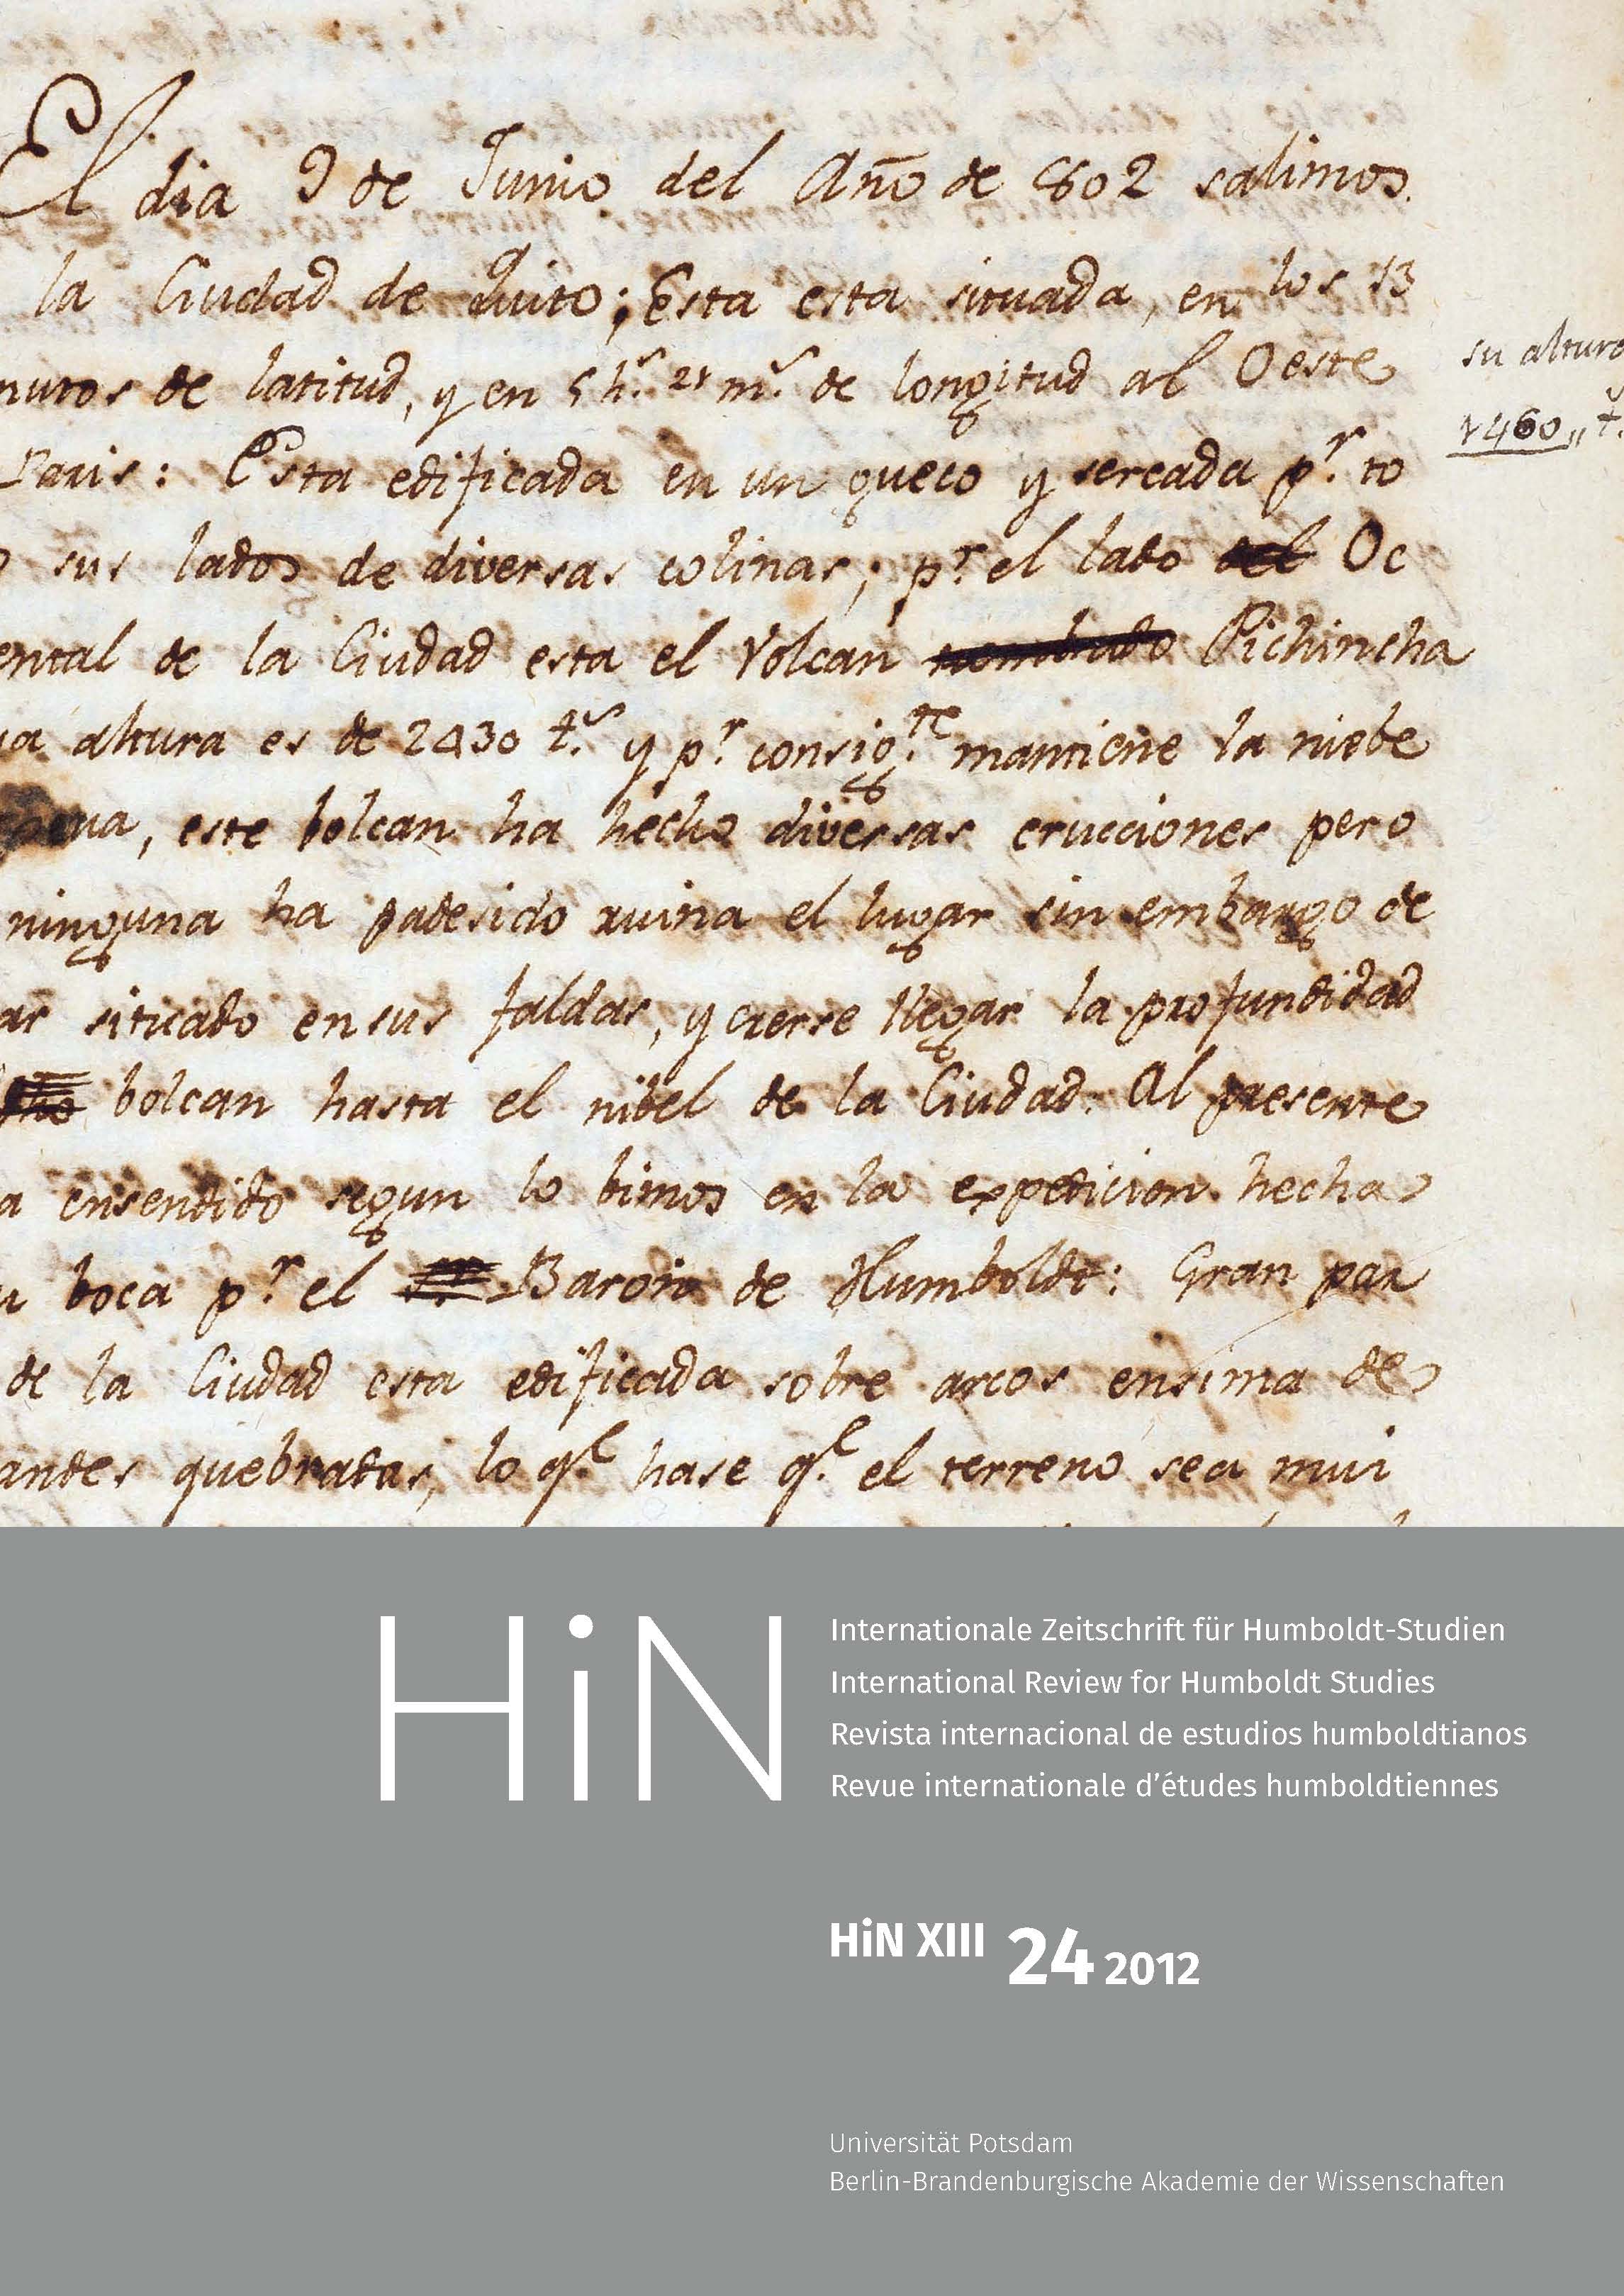 El dia 9 de Junio del Año de 802 salimos
la Ciudad de Quito; Esta esta situada, en los 13
nutos de latitud, y en 5 h.ˢ 21 m.ˢ de longitud al Oeste
su altura
1460,, t.ˢ
Paris: Esta edificada en un queco y sercada p.ʳ to
o sus lados de diversas colinas; p.ʳ el lado del Oc
ental de la Ciudad esta el Volcan nombrado Pichincha
ya altura es de 2430 t.ˢ y p.ʳ consig.ᵗᵉ mantiene la niebe
, este bolcan ha hecho diversas erucciones pero
ninguna ha padesido ruina el lugar sin embargo de
ar situado en sus faldas, y crerse llegar la profundidad
bolcan hasta el nibel de la Ciudad. Al presente
a ensendido segun lo bimos en la expedicion hecha
u boca p.ʳ el Baron de Humboldt: Gran par
de la Ciudad esta edificada sobre arcos ensima de
andes quebradas, lo q.ᵉ hase q.ᵉ el terreno sea mui
HiN
Internationale Zeitschrift für Humboldt-Studien
International Review for Humboldt Studies
Revista internacional de estudios humboldtianos
Revue internationale d’études humboldtiennes
HiN XIII 24 2012
Universität Potsdam
Berlin-Brandenburgische Akademie der Wissenschaften